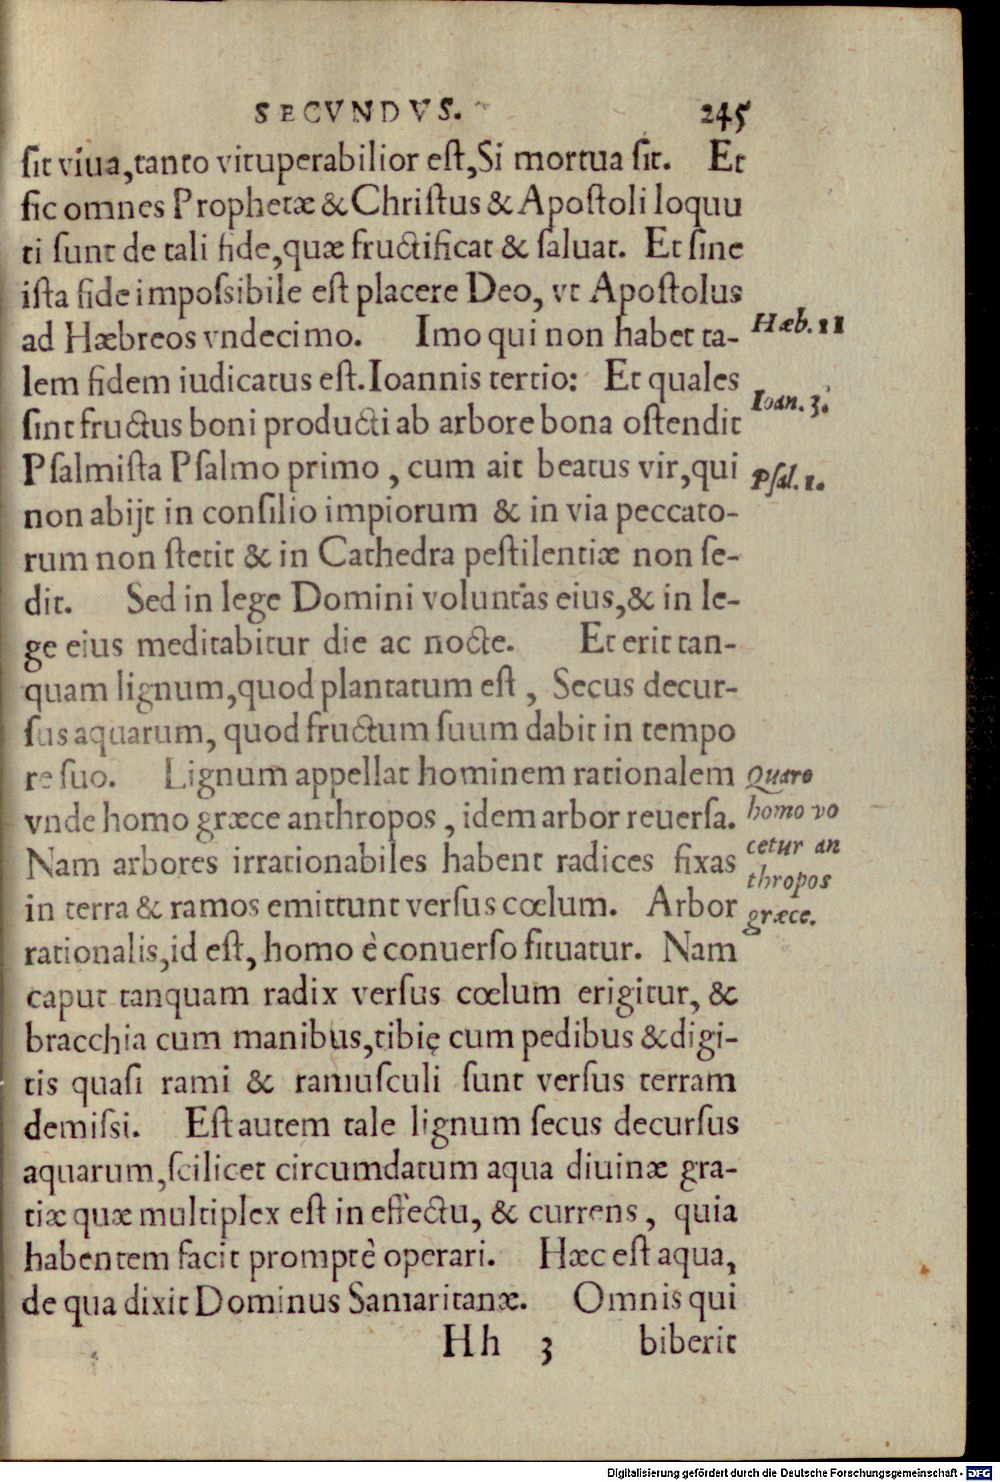 SECVNDVS. 245
ſit viua, tanto vituperabilior eſt, Si mortua ſit. Et
ſic omnes Prophetæ & Chriſtus & Apoſtoli loquu
ti ſunt de tali fide, quæ fructificat & ſaluat. Et ſine
iſta fide impoſsibile eſt placere Deo, vt Apoſtolus
ad Hæbreos vndecimo. Imo qui non habet ta-
Hæb. 11
lem fidem iudicatus eſt. Ioannis tertio: Et quales
Ioan. 3.
ſint fructus boni producti ab arbore bona oſtendit
Pſalmiſta Pſalmo primo, cum ait beatus vir, qui
Pſal. 1.
non abijt in conſilio impiorum & in via peccato-
rum non ſtetit & in Cathedra peſtilentiæ non ſe-
dit. Sed in lege Domini voluntas eius, & in le-
ge eius meditabitur die ac nocte. Et erit tan-
quam lignum, quod plantatum eſt, Secus decur-
ſus aquarum, quod fructum ſuum dabit in tempo
re ſuo. Lignum appellat hominem rationalem
Quare
vnde homo græce anthropos, idem arbor reuerſa.
homo vo
Nam arbores irrationabiles habent radices fixas
cetur an
thropos
in terra & ramos emittunt verſus cœlum. Arbor
græce.
rationalis, id eſt, homo è conuerſo ſituatur. Nam
caput tanquam radix verſus cœlum erigitur, &
bracchia cum manibus, tibię cum pedibus & digi-
tis quaſi rami & ramuſculi ſunt verſus terram
demiſsi. Eſt autem tale lignum ſecus decurſus
aquarum, ſcilicet circumdatum aqua diuinæ gra-
tiæ quæ multiplex eſt in effectu, & currens, quia
habentem facit promptè operari. Hæc eſt aqua,
de qua dixit Dominus Samaritanæ. Omnis qui
Hh 3 biberit
Digitalisierung gefördert durch die Deutsche Forschungsgemeinschaft - DFG